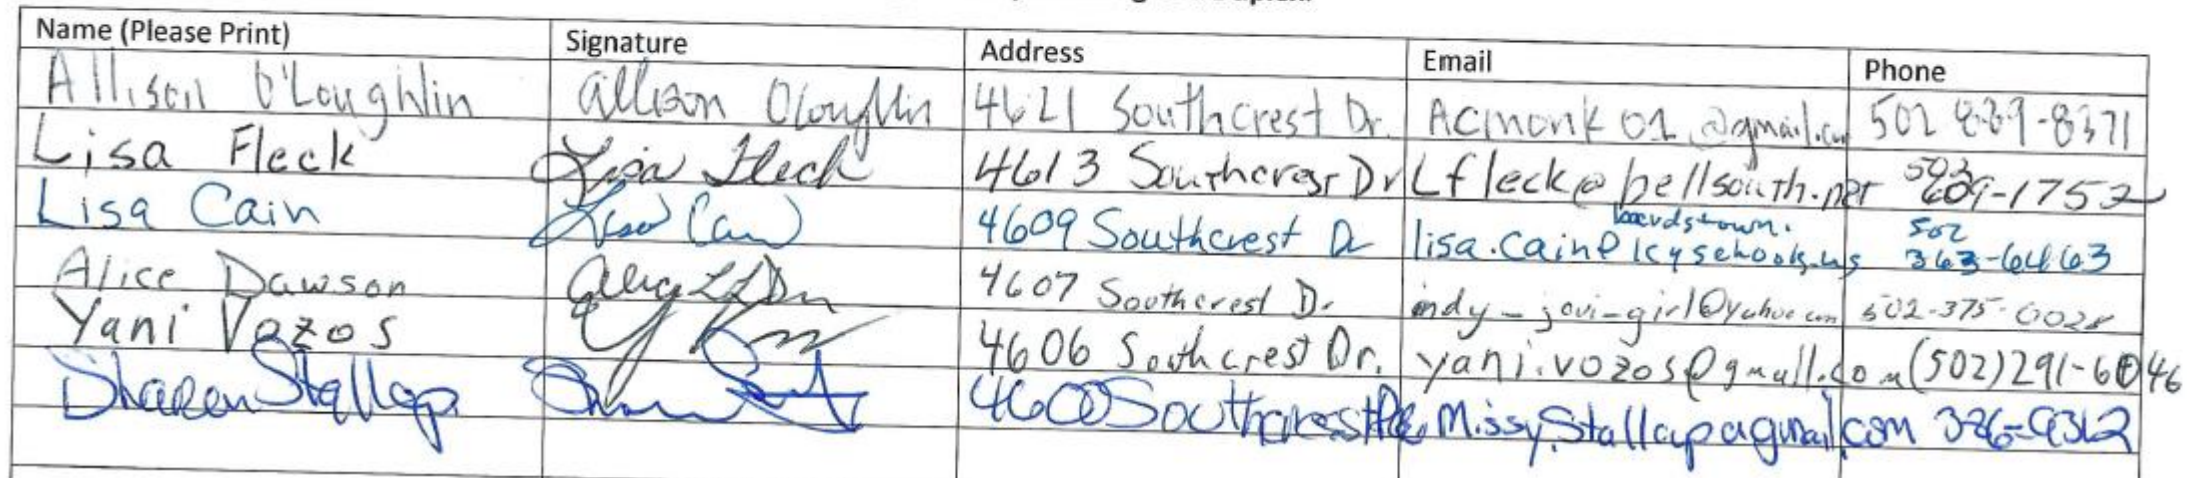 Name (Please Print) Signature Address Email Phone
Allison O'Loughlin Allison OLoughlin 4621 Southcrest Dr. ACmonk01@gmail.com 502 889-8371
Lisa Fleck Lisa Fleck 4613 Southcrest Dr Lfleck@bellsouth.net 502 609-1752
Lisa Cain Lisa Cain 4609 Southcrest Dr lisa.cain@bardstown.kyschools.us 502 363-6463
Alice Dawson 4607 Southcrest Dr indy_jovi_girl@yahoo.com 502-375-0028
Yani Vozos 4606 Southcrest Dr. yani.vozos@gmail.com (502)291-6046
Sharon Stallap 4600 Southcrest Dr Missy.Stallap@gmail.com